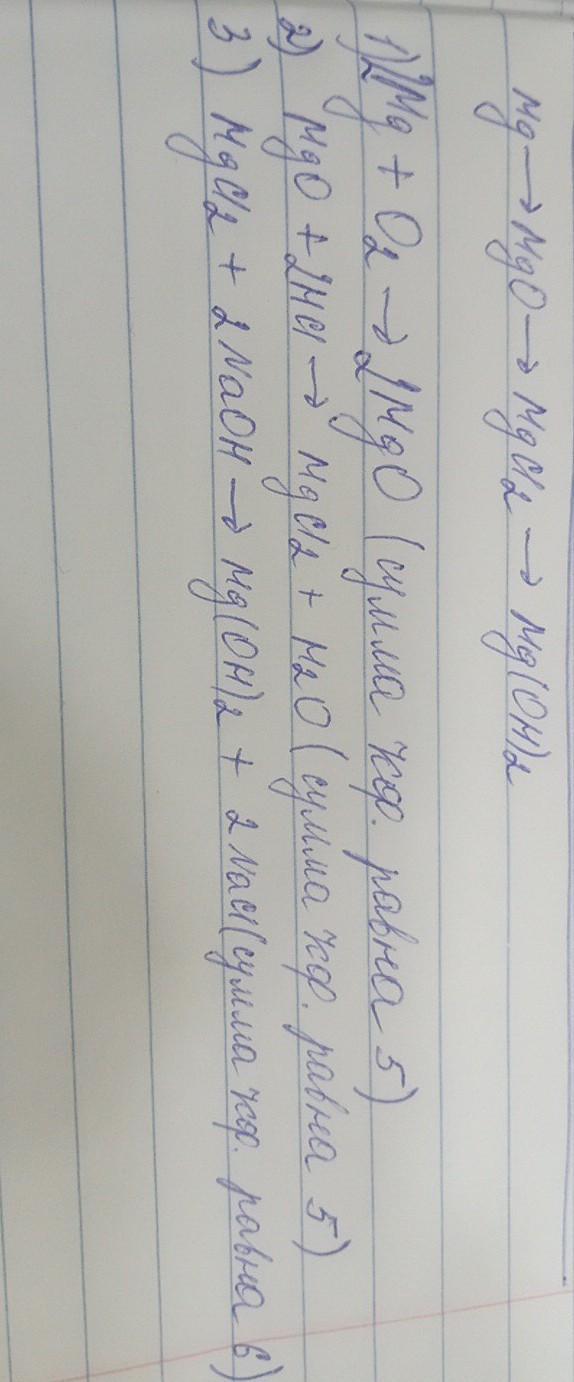 Mg → MgO → MgCl2 → Mg(OH)2
1) 2Mg + O2 → 2MgO (сумма кф. равна 5)
2) MgO + 2HCl → MgCl2 + H2O (сумма кф. равна 5)
3) MgCl2 + 2NaOH → Mg(OH)2 + 2NaCl (сумма кф. равна 6)